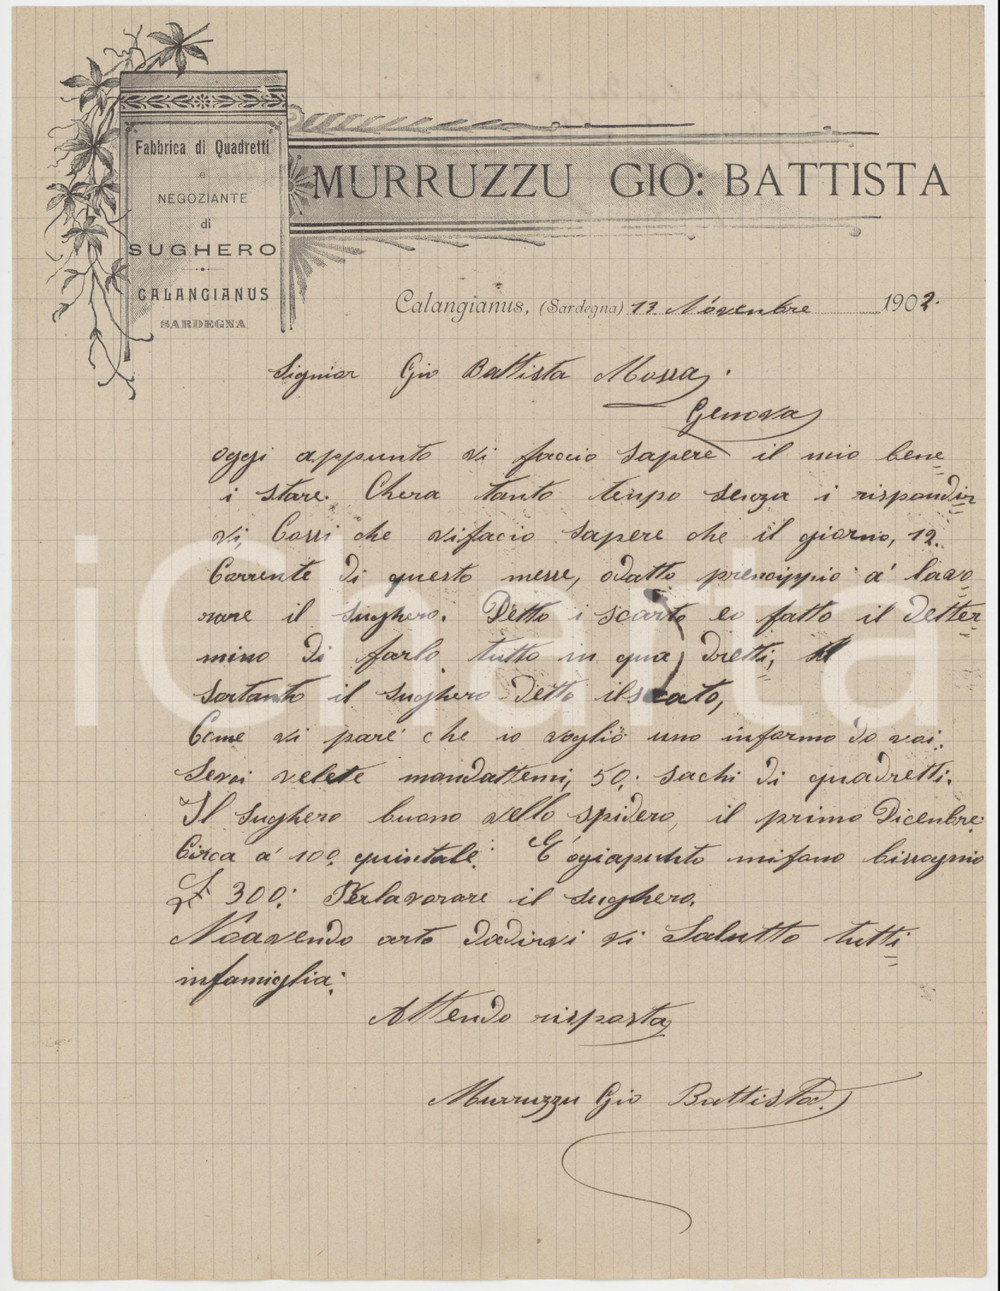 Fabbrica di Quadretti
e
NEGOZIANTE
di
SUGHERO
CALANGIANUS
SARDEGNA
MURRUZZU GIO: BATTISTA
Calangianus, (Sardegna) 13 Novembre 1902.
Signior Gio Battista Mossa.
Genova
oggi appunto vi faccio sapere il mio bene
i stare. Chera tanto tenpo senza i rispondir
vi, Cossi che vifacio sapere che il giorno, 12.
Corrente di questo messe, odatto prencippio a' lavo
rare il sughero. Detto i scarto eo fatto il detter
mino di farlo tutto in qua dretti,
sortanto il sughero detto ilscato,
Come vi pare che io voglio uno informo da voi.
Sevoi velete mandattemi, 50,: sachi di quadretti.
Il sughero buono vello spidero, il primo Dicenbre
Circa a' 100. quintale. E' ogiapunto mifano bissognio
£ 300: Perlavorare il sughero.
Noavendo arto dadirvi vi Salutto tutti
infamiglia:
Attendo risposta
Murruzzu Gio Battista.
iCharta